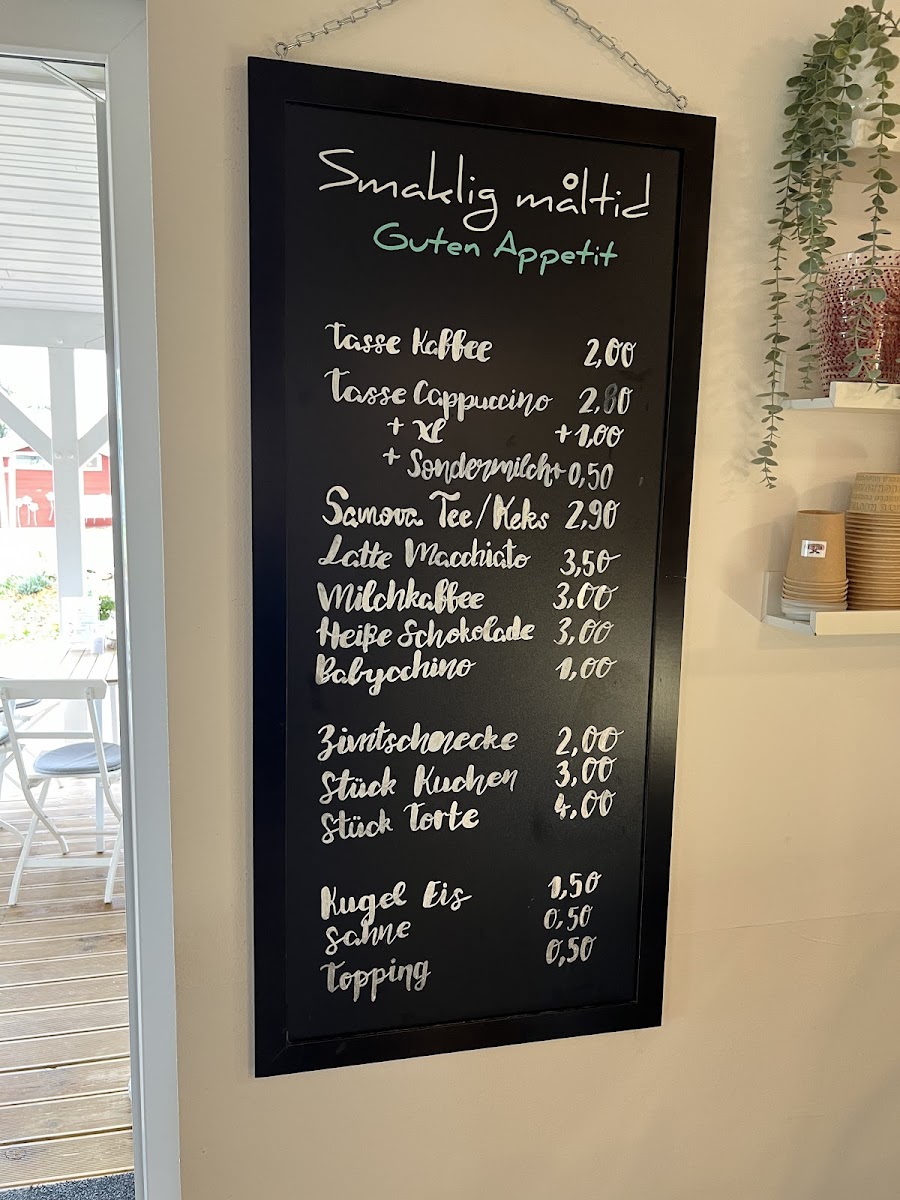 Smaklig måltid
Guten Appetit
Tasse Kaffee 2,00
Tasse Cappuccino 2,80
+ XL +1,00
+ Sondermilch +0,50
Samova Tee/Keks 2,90
Latte Macchiato 3,50
Milchkaffee 3,00
Heiße Schokolade 3,00
Babycchino 1,00
Zimtschnecke 2,00
Stück Kuchen 3,00
Stück Torte 4,00
Kugel Eis 1,50
Sahne 0,50
Topping 0,50